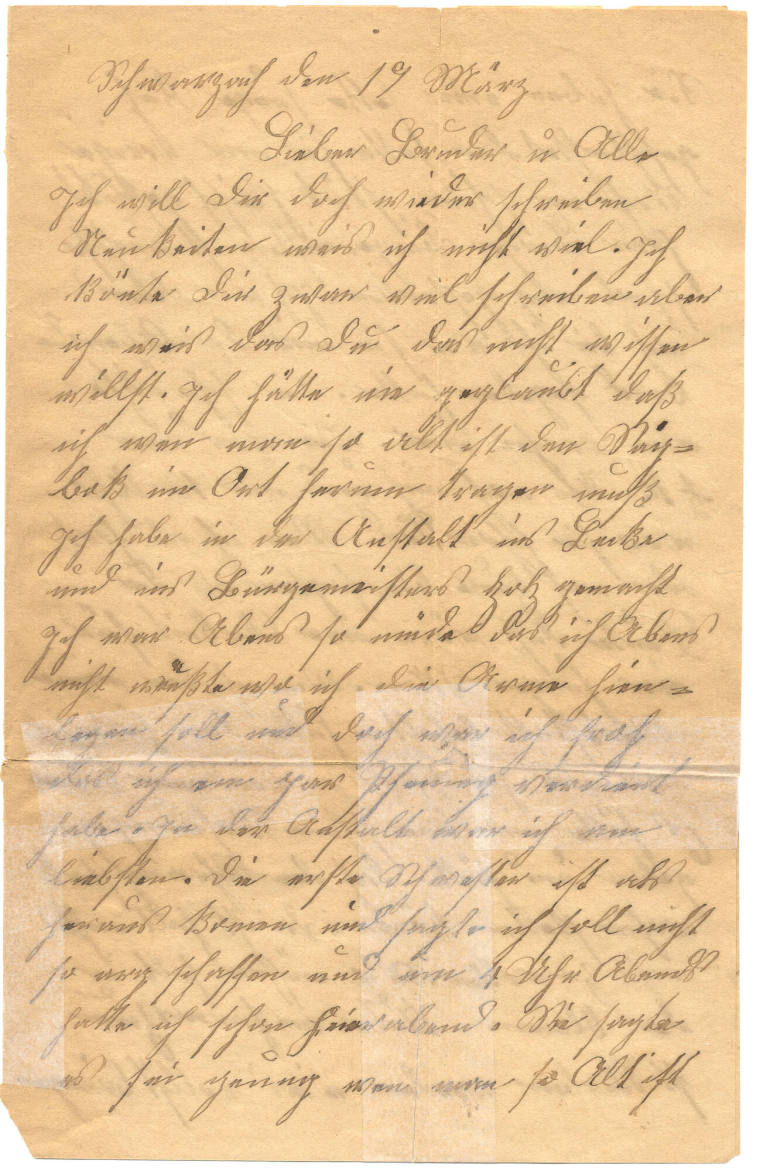 Schwarzach den 19 März
Lieber Bruder u Alle
Ich will Dir doch wieder schreiben
Neukeiten weis ich nicht viel. Ich
könte Dir zwar viel schreiben aber
ich weis das Du das nicht wissen
willst. Ich hätte nie geglaubt daß
ich wen man so alt ist den Säg=
bok im Ort herum tragen muß
Ich habe in der Anstalt ins Becke
und ins Bürgemeisters Holz gemacht
Ich war Abens so müde das ich Abens
nicht wußte wo ich die Arme hien=
legen soll und doch war ich froh
das ich ein par Pfening verdient
habe. In der Anstalt war ich am
liebsten. Die erste Schwester ist als
heraus komen und sagte ich soll nicht
so arg schaffen und um 4 Uhr Abends
hatte ich schon Feierabend. Sie sagte
es sei genug wen man so Alt ist